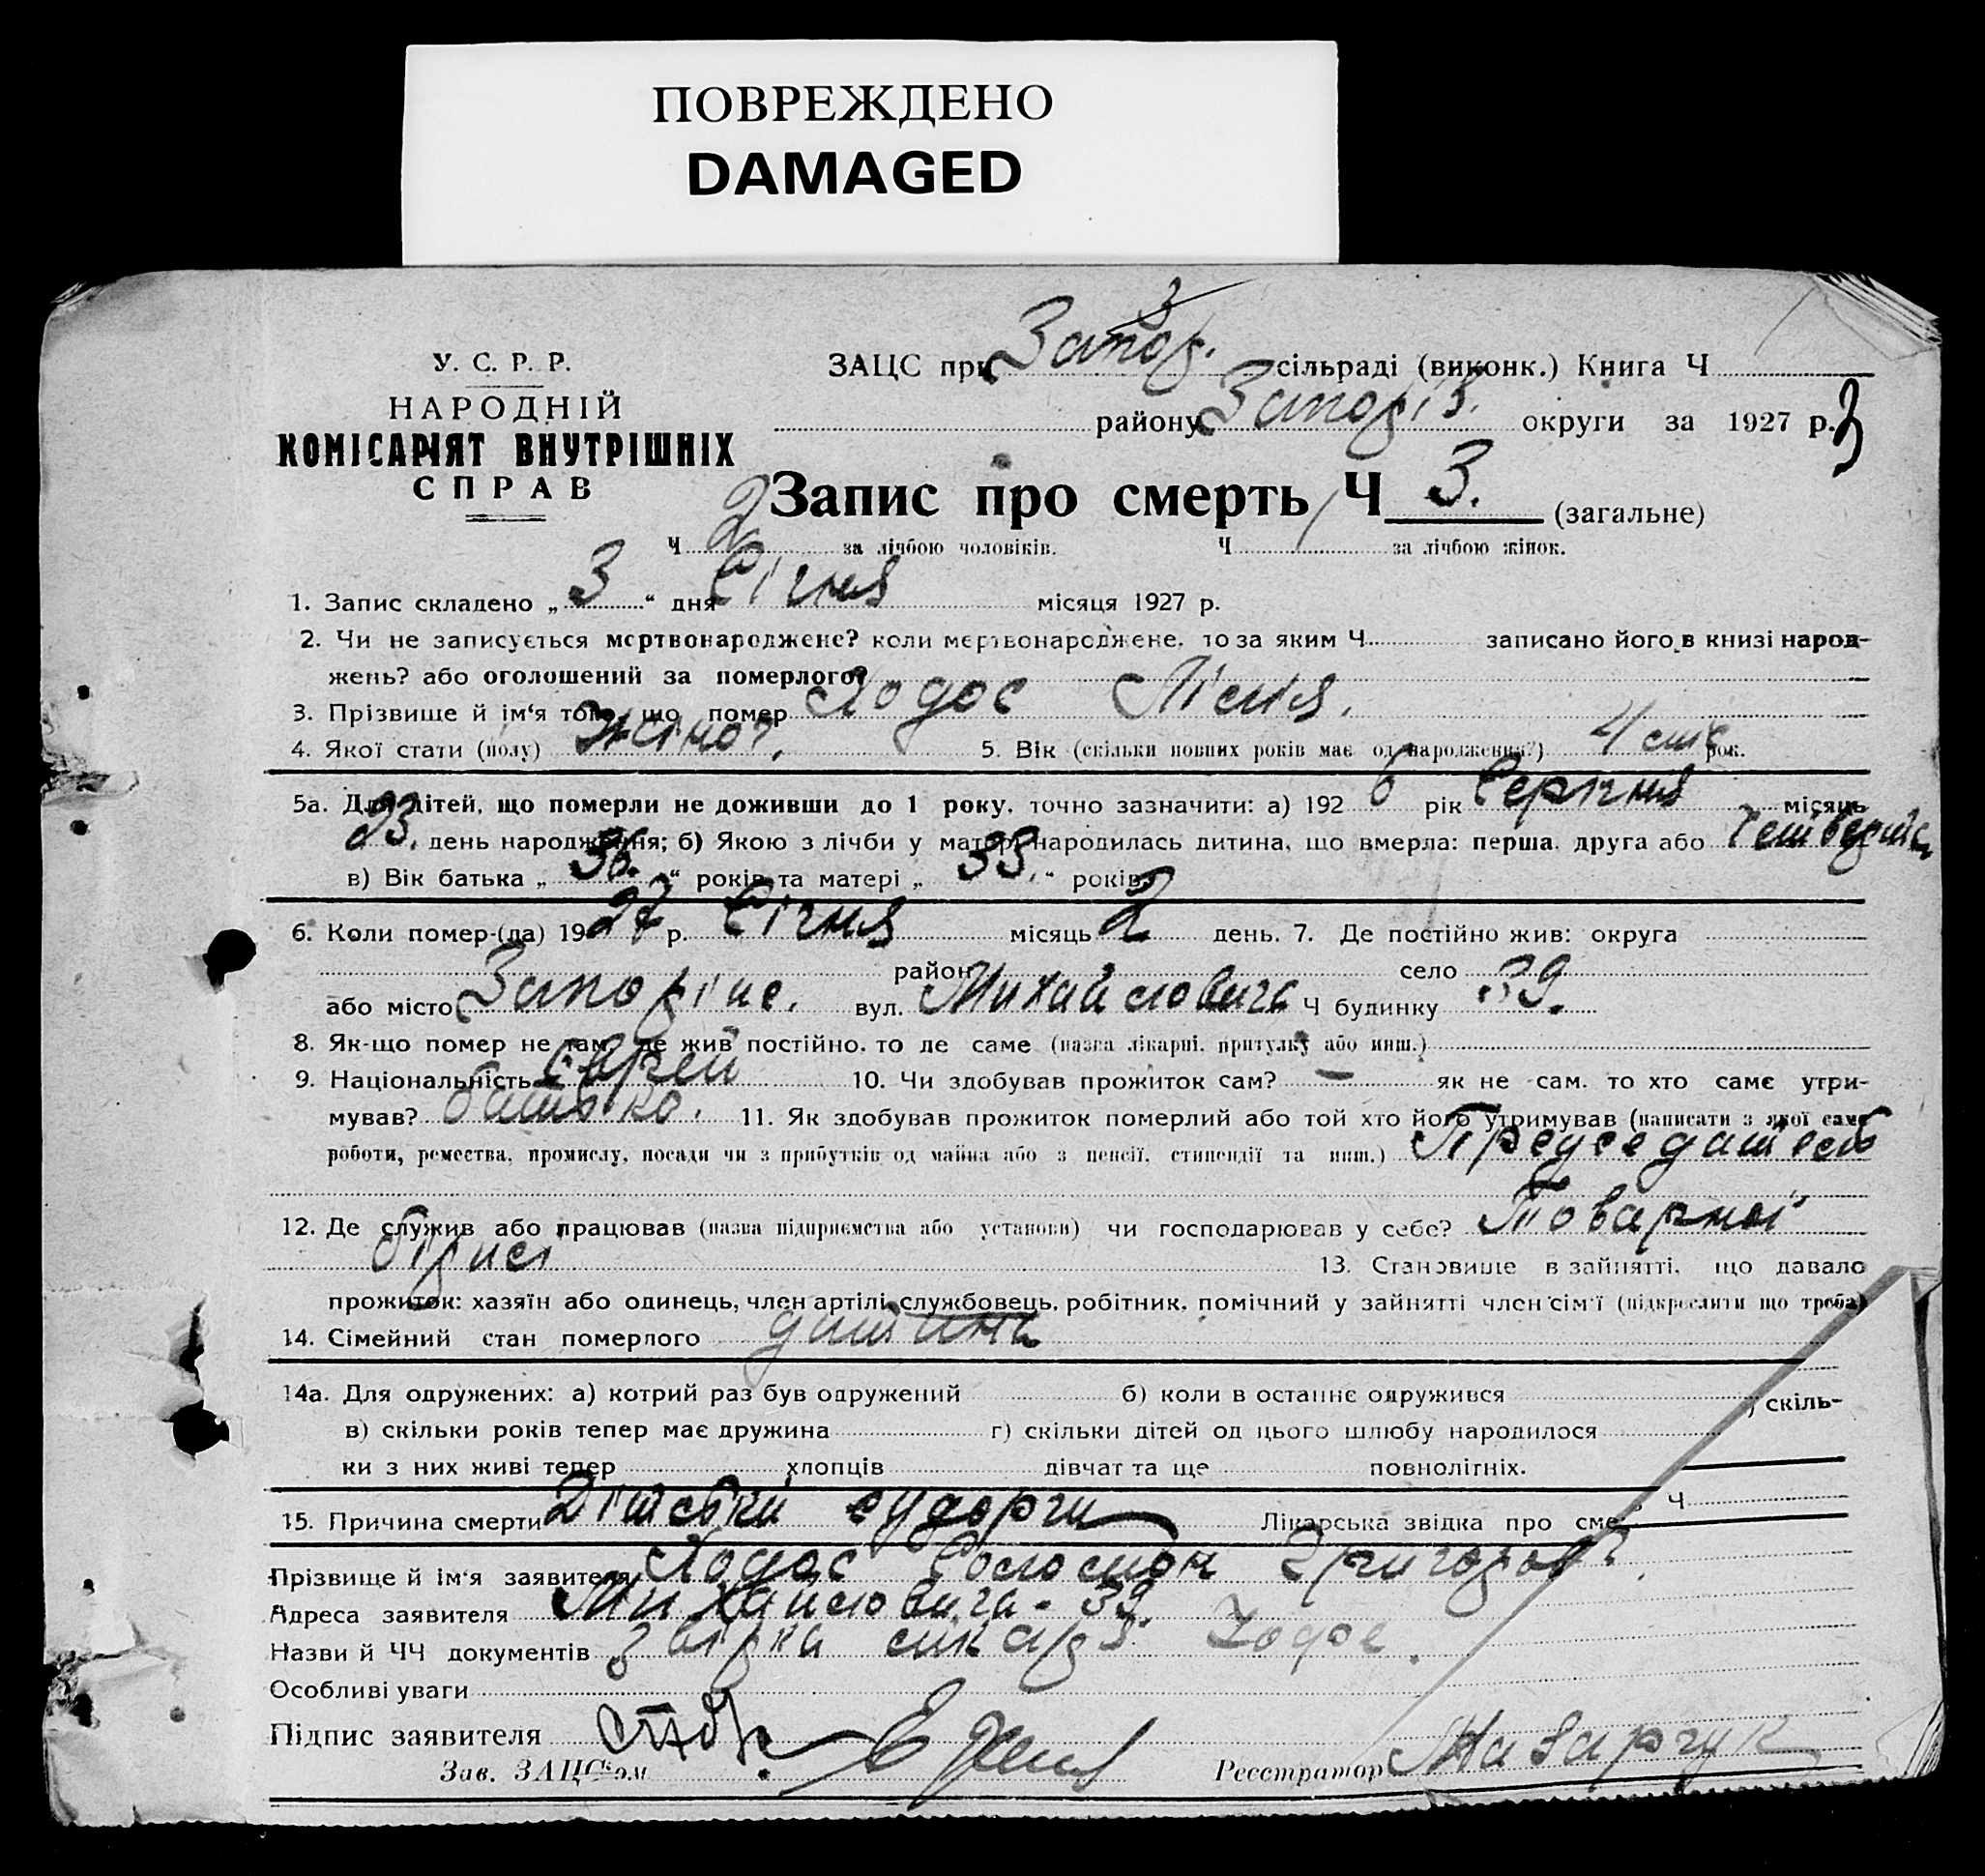 ПОВРЕЖДЕНО
DAMAGED
3
У. С. Р. Р.
НАРОДНІЙ
КОМІСАРІЯТ ВНУТРІШНІХ
СПРАВ
ЗАЦС при Запор. сільраді (виконк.) Книга Ч
району Запоріз. округи за 1927 р. 3
Запис про смерть Ч 3. (загальне)
Ч 2 за лічбою чоловіків. Ч 1 за лічбою жінок.
1. Запис складено „ 3 “ дня Січня місяця 1927 р.
2. Чи не записується мертвонароджене? коли мертвонароджене, то за яким Ч записано його в книзі народ-
жень? або оголошений за померлого?
3. Прізвище й ім'я того, що помер Ходос
4. Якої стати (полу) Жіноч. 5. Вік (скільки повних років має од народження?) 4 міс рок.
5а. Для дітей, що померли не доживши до 1 року, точно зазначити: а) 192 6 рік Серпня місяць
23. день народження; б) Якою з лічби у матері народилась дитина, що вмерла: перша, друга або четверта
в) Вік батька „ 36. “ років та матері „ 33. “ років.
6. Коли помер-(ла) 19 27 р. Січня місяць 2 день. 7. Де постійно жив: округа
район село
або місто Запоріже. вул. Михайловича Ч будинку 39.
8. Як-що помер не там, де жив постійно, то де саме (назва лікарні, притулку або инш.)
9. Національність Єврей 10. Чи здобував прожиток сам? — як не сам, то хто саме утри-
мував? батько. 11. Як здобував прожиток померлий або той хто його утримував (написати з якої саме
роботи, ремества, промислу, посади чи з прибутків од майна або з пенсії, стипендії та инш.) Председатель
12. Де служив або працював (назва підприємства або установи) чи господарював у себе? Товарної
біржі 13. Становище в зайнятті, що давало
прожиток: хазяїн або одинець, член артілі, службовець, робітник, помічний у зайнятті член сім'ї (підкреслити що треба)
14. Сімейний стан померлого дитина
14а. Для одружених: а) котрий раз був одружений б) коли в останнє одружився , скіль-
в) скільки років тепер має дружина г) скільки дітей од цього шлюбу народилося
ки з них живі тепер хлопців дівчат та ще повнолітніх.
15. Причина смерти Дітські судорги Лікарська звідка про сме Ч
Прізвище й ім'я заявителя Ходос Соломон Григоров.
Адреса заявителя Михайловича - 39.
Назви й ЧЧ документів звідка лікаря Ходос.
Особливі уваги
Підпис заявителя
Зав. ЗАЦС'ом Реєстратор Назарчук